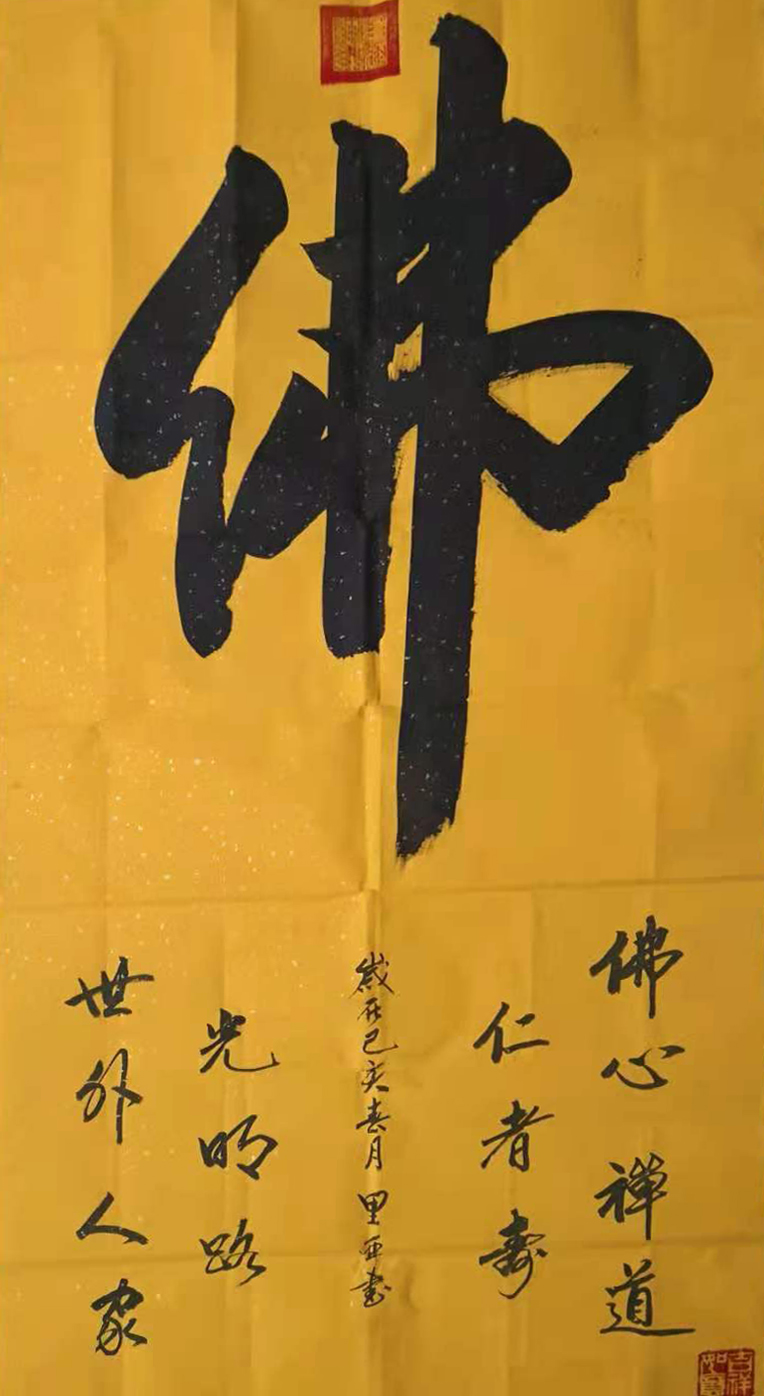 佛
佛心禪道
仁者壽
歲在己亥春月里西書
光明路
世外人家
吉祥如意